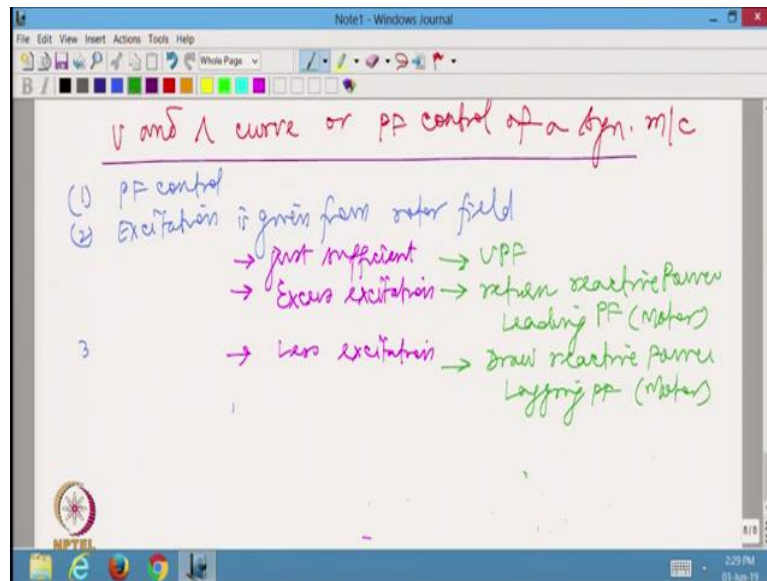 Note1 - Windows Journal
File Edit View Insert Actions Tools Help
Whole Page
B I
V and Λ curve or PF control of a Syn. m/c
(1) PF control
(2) Excitation is given from rotor field
→ Just sufficient → UPF
→ Excess excitation → return reactive Power
Leading PF (Motor)
3 → Less excitation → Draw reactive Power
Lagging PF (Motor)
NPTEL
8/8
2:29 PM
03-Jun-19